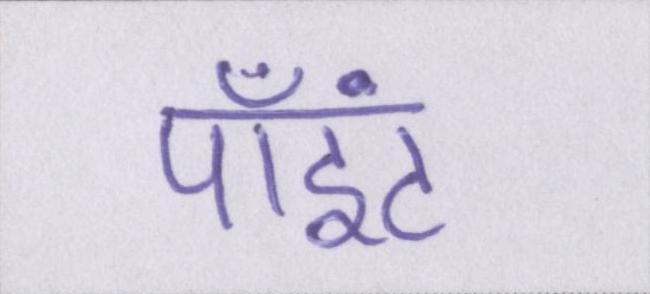 पाँइंट